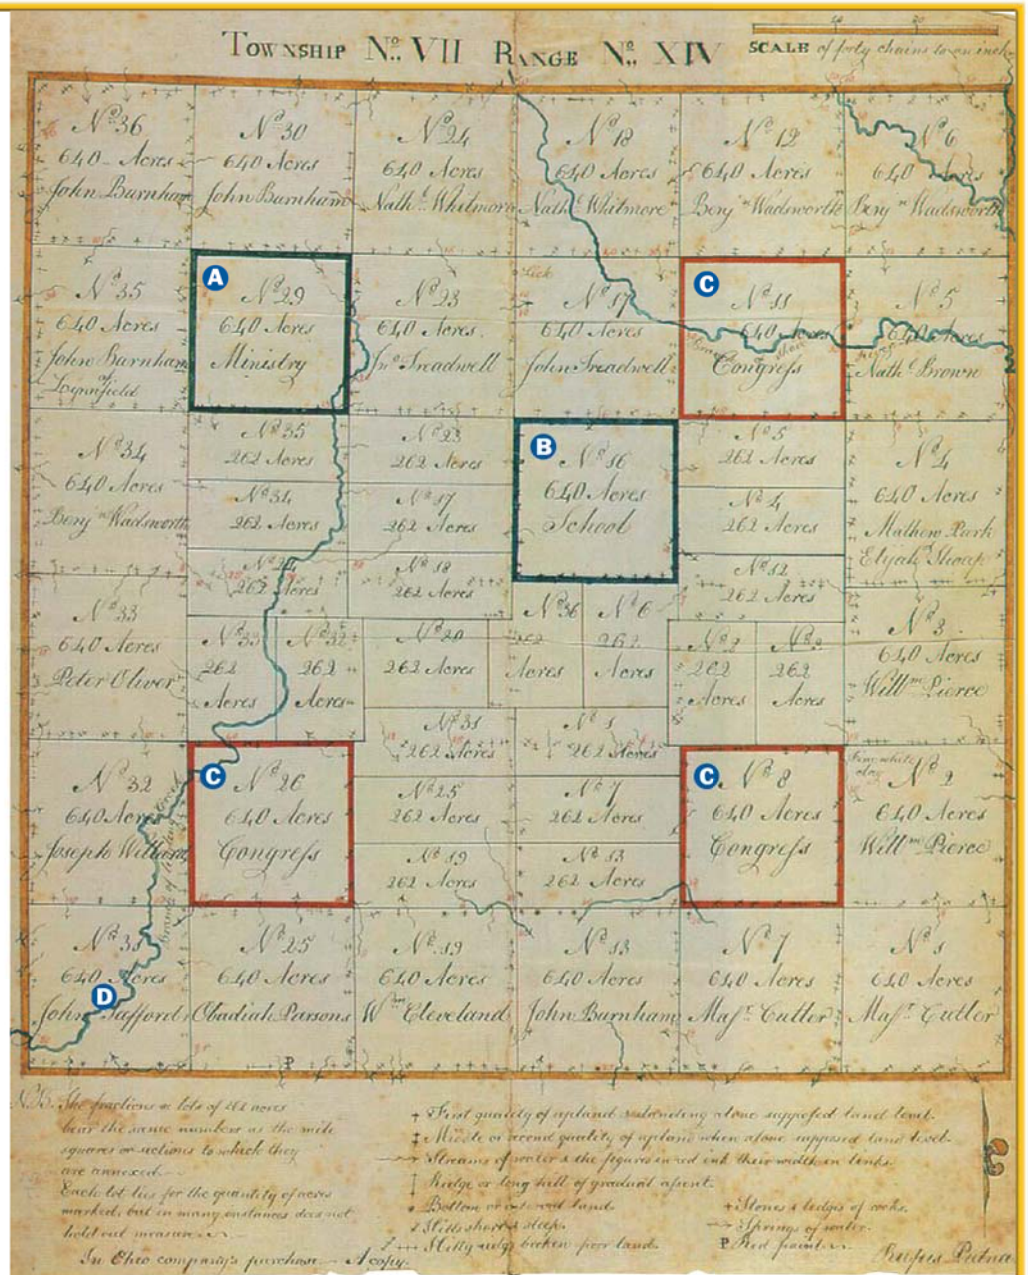 TOWNSHIP No. VII RANGE No. XIV
SCALE of forty chains to an inch
No 36
640 Acres
John Burnham
No 30
640 Acres
John Burnham
No 24
640 Acres
Nath.l Whitmore
No 18
640 Acres
Nath.l Whitmore
No 12
640 Acres
Benj.n Wadsworth
No 6
640 Acres
Benj.n Wadsworth
No 35
640 Acres
John Burnham
of Lynnfield
A
No 29
640 Acres
Ministry
No 23
640 Acres
Jn.o Treadwell
Lick
No 17
640 Acres
John Treadwell
C
No 11
640 Acres
Congress
No 5
640 Acres
Nath.l Brown
No 34
640 Acres
Benj.n Wadsworth
No 35
262 Acres
No 34
262 Acres
262 Acres
No 23
262 Acres
No 17
262 Acres
No 18
262 Acres
B
No 16
640 Acres
School
No 5
262 Acres
No 4
262 Acres
No 12
262 Acres
No 4
640 Acres
Mathew Park
Elijah
No 33
640 Acres
Peter Oliver
No 33
262
Acres
No 32
262
Acres
No 20
262 Acres
No 36
262
Acres
No 6
262
Acres
No 2
262
Acres
262
Acres
No 3
640 Acres
Will.m Pierce
No 31
262 Acres
No 1
262 Acres
No 25
262 Acres
No 7
262 Acres
No 19
262 Acres
No 13
262 Acres
No 32
640 Acres
Joseph Willard
C
No 26
640 Acres
Congress
C
No 8
640 Acres
Congress
Fine white clay
No 2
640 Acres
Will.m Pierce
No 31
640 Acres
D
John Safford
No 25
640 Acres
Obadiah Parsons
No 19
640 Acres
W.m Cleveland
No 13
640 Acres
John Burnham
No 7
640 Acres
Mass.r Cutler
No 1
640 Acres
Mass.r Cutler
P
N.B. The fractions or lots of 262 acres
bear the same numbers as the mile
squares or sections to which they
are annexed.
Each lot lies for the quantity of acres
marked, but in many instances does not
hold out measure.
In Ohio company's purchase — A copy.
First quality of upland & standing alone supposed land level.
Middle or second quality of upland when alone supposed land level.
Streams of water & the figures in red ink their width in links.
Ridge or long hill of gradual ascent.
Bottom or land.
Hills short & steep.
Hilly ridgy broken poor land.
Stones & ledges of rocks.
Springs of water.
P Red paint.
Rufus Putnam